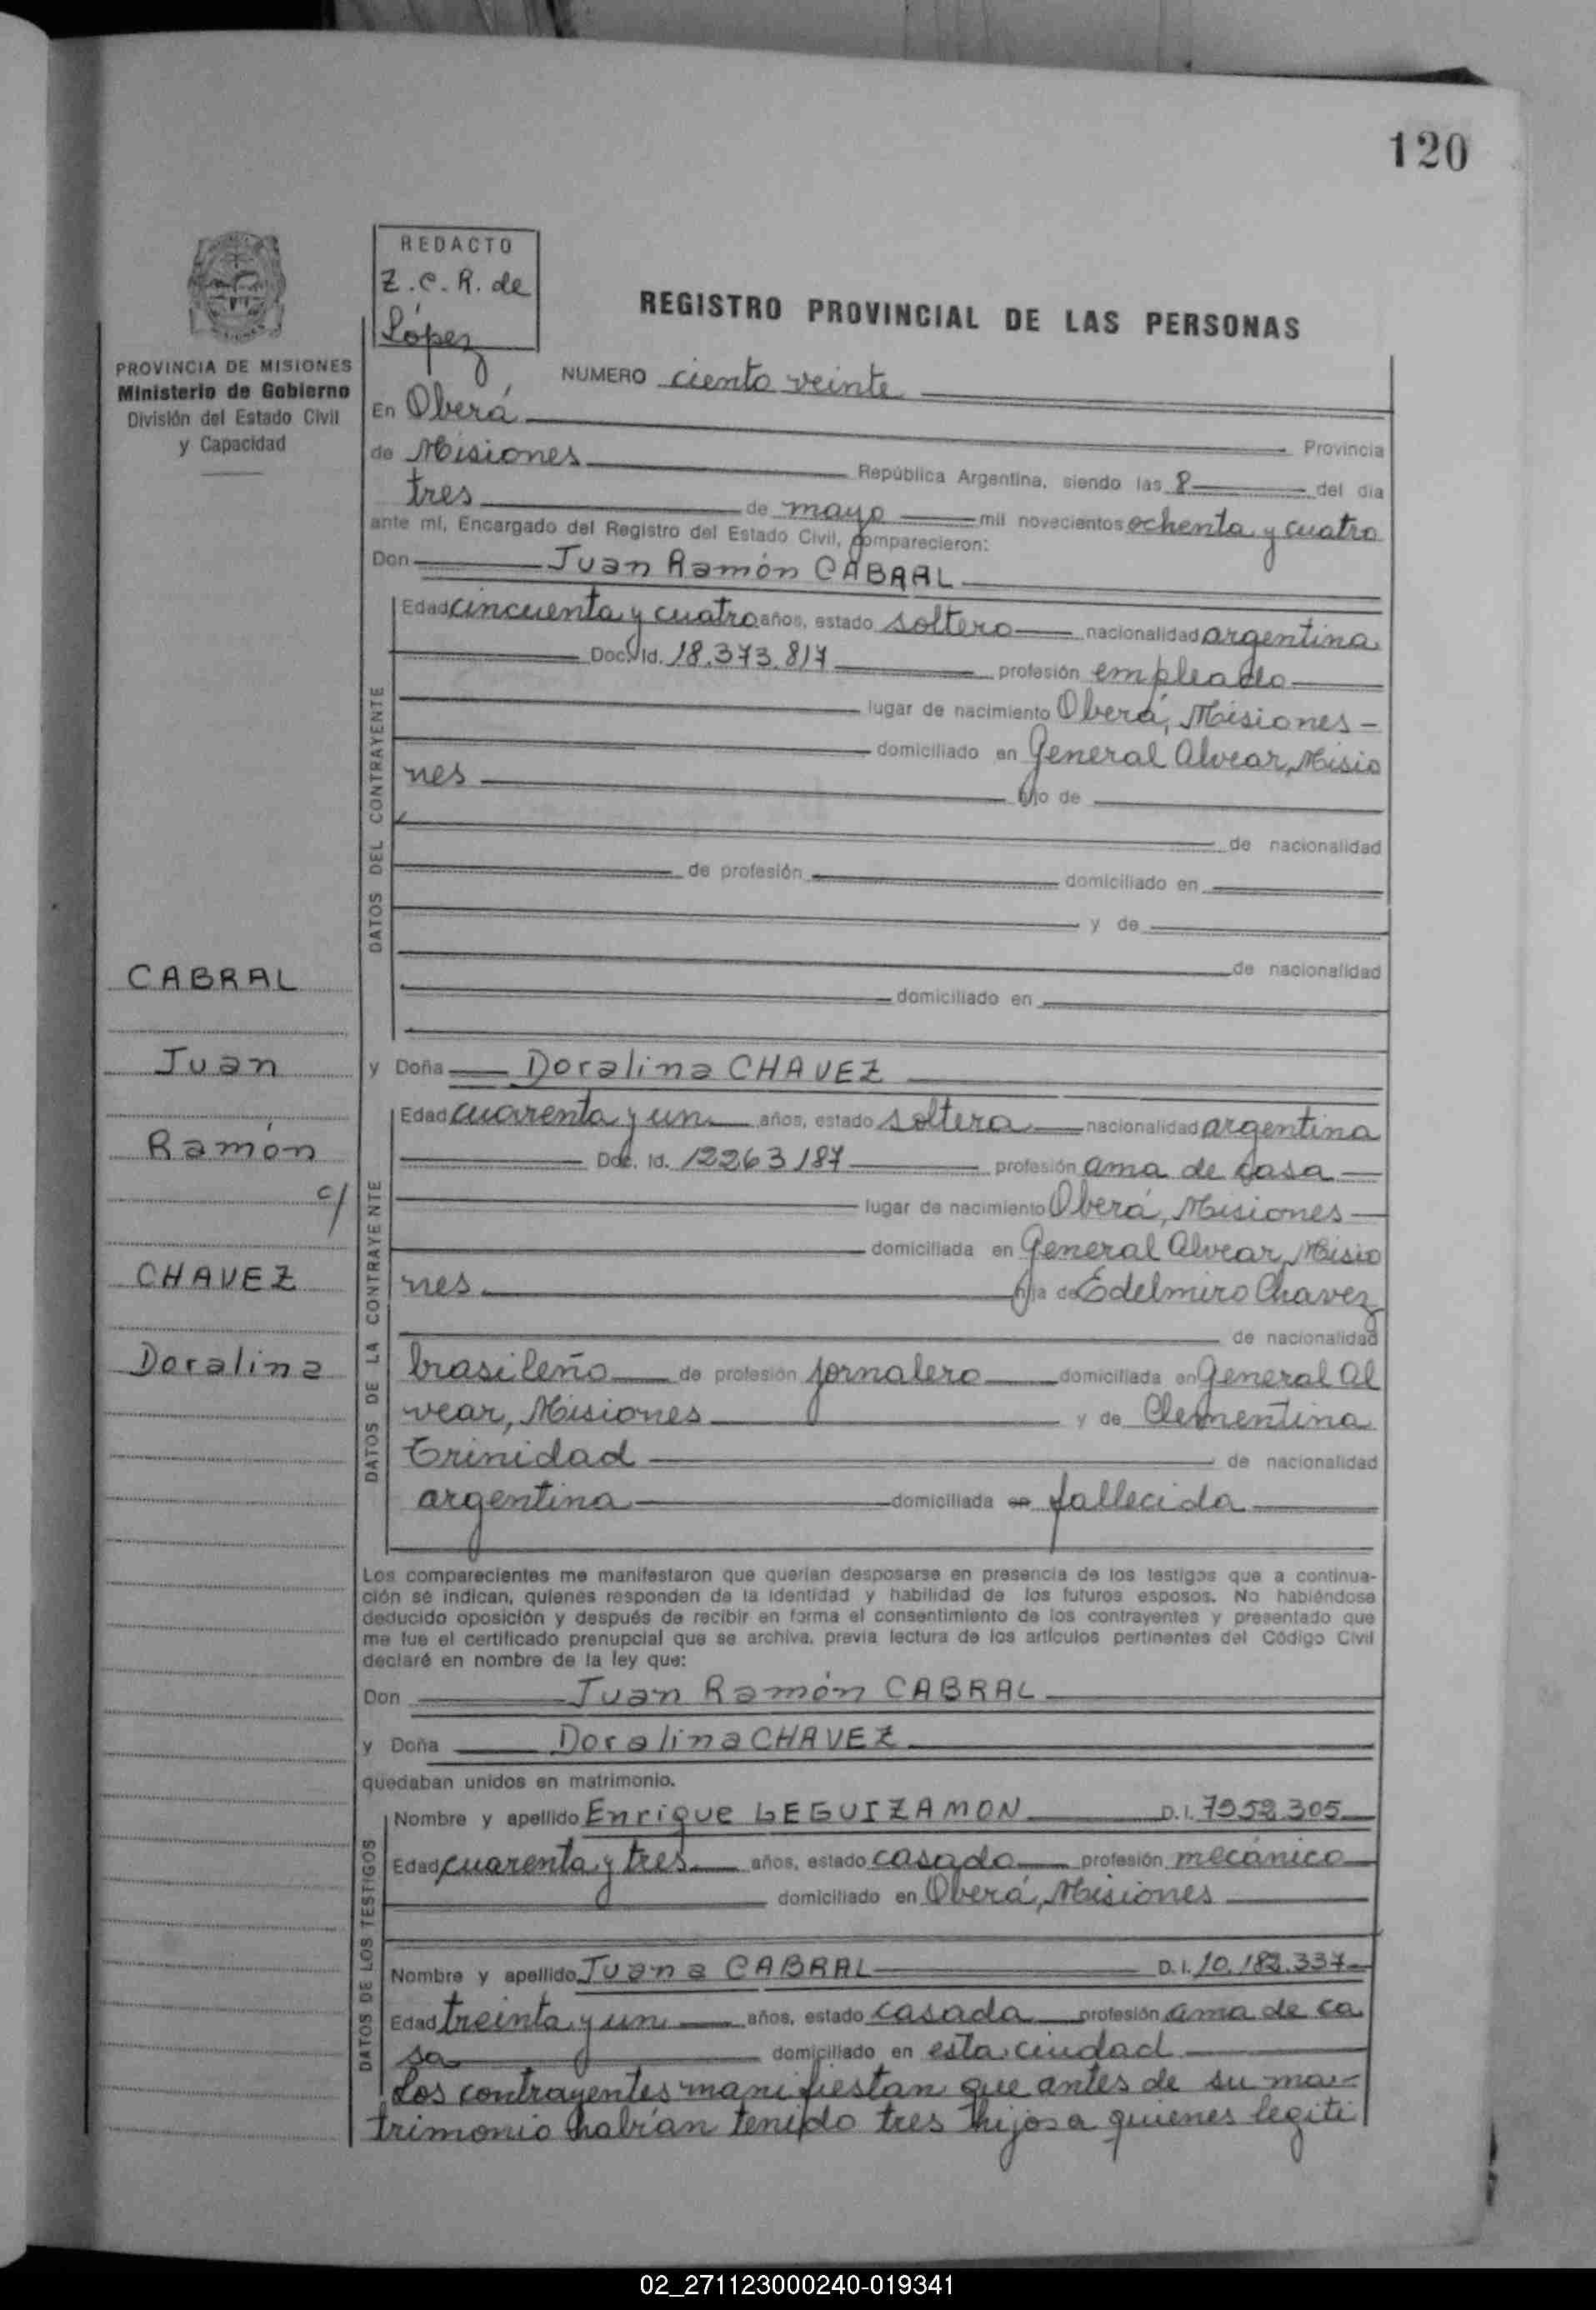 120
REDACTO
Z.C.R. de
López
REGISTRO PROVINCIAL DE LAS PERSONAS
PROVINCIA DE MISIONES
Ministerio de Gobierno
División del Estado Civil
y Capacidad
NUMERO ciento veinte
En Oberá
Provincia
de Misiones República Argentina, siendo las 8 del día
tres de mayo mil novecientos ochenta y cuatro
ante mí, Encargado del Registro del Estado Civil, comparecieron:
Don Juan Ramón CABRAL
DATOS DEL CONTRAYENTE
Edad cincuenta y cuatro años, estado soltero nacionalidad argentina
Doc. Id. 18.373.817 profesión empleado
lugar de nacimiento Oberá, Misiones-
domiciliado en General Alvear, Misio
nes hijo de
de nacionalidad
de profesión domiciliado en
y de
de nacionalidad
domiciliado en
CABRAL
Juan
Ramón
c/
CHAVEZ
Doralina
y Doña Doralina CHAVEZ
DATOS DE LA CONTRAYENTE
Edad cuarenta y un años, estado soltera nacionalidad argentina
Doc. Id. 12263187 profesión ama de casa
lugar de nacimiento Oberá, Misiones
domiciliada en General Alvear, Misio
nes hija de Edelmiro Chavez
de nacionalidad
brasileño de profesión jornalero domiciliada en General Al
vear, Misiones y de Clementina
Trinidad de nacionalidad
argentina domiciliada en fallecida
Los comparecientes me manifestaron que querían desposarse en presencia de los testigos que a continua-
ción se indican, quienes responden de la identidad y habilidad de los futuros esposos. No habiéndose
deducido oposición y después de recibir en forma el consentimiento de los contrayentes y presentado que
me fue el certificado prenupcial que se archiva, previa lectura de los artículos pertinentes del Código Civil
declaré en nombre de la ley que:
Don Juan Ramón CABRAL
y Doña Doralina CHAVEZ
quedaban unidos en matrimonio.
DATOS DE LOS TESTIGOS
Nombre y apellido Enrique LEGUIZAMON D.I. 7.952.305
Edad cuarenta y tres años, estado casado profesión mecánico
domiciliado en Oberá, Misiones
Nombre y apellido Juana CABRAL D.I. 10.182.337
Edad treinta y un años, estado casada profesión ama de ca
sa domiciliado en esta ciudad
Los contrayentes manifiestan que antes de su ma-
trimonio habían tenido tres hijos a quienes legiti
02_271123000240-019341